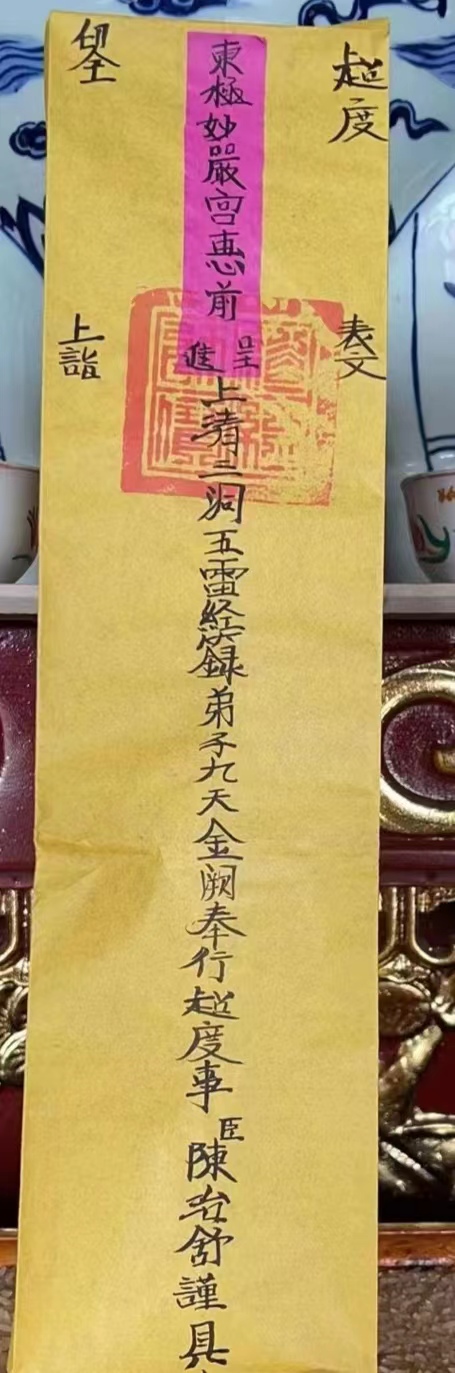 超度 表文
東極妙嚴宮恵前 呈進 上清三洞五雷経籙弟子九天金闕奉行超度事臣陳舒謹具
上詣